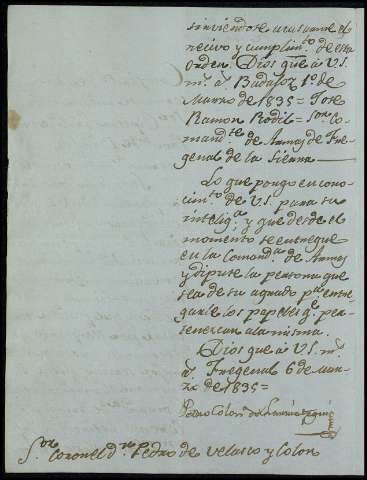 sirviendose avisarme el
recivo y cumplim.to de esta
orden. Dios gue à V.S.
m.s a.s Badajoz 1.o de
Marzo de 1835 = Jose
Ramon Rodil = Sor. Co-
mand.te de Armas de Fre-
genal de la Sierra
Lo que pongo en cono-
cim.to de V.S. para su
intelig.a y que desde el
momento se entregue
en la Comand.a de Armas
y dipute la persona que
sea de su agrado p.a entre-
garle los papeles q.e per-
tenezcan a la misma.
Dios gue à V.S. m.s
a.s Fregenal 6 de Mar-
zo de 1835 =
Pedro Colon de
S.or Coronel d.n Pedro de Velasco y Colon